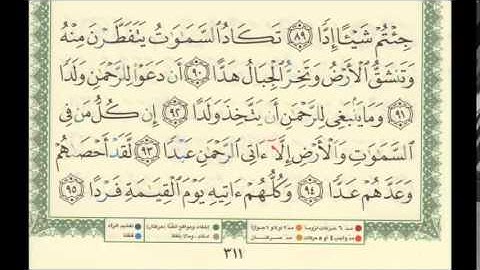 جِئْتُمْ شَيْـًٔا إِدًّا ٨٩ تَكَادُ ٱلسَّمَـٰوَٰتُ يَتَفَطَّرْنَ مِنْهُ
وَتَنشَقُّ ٱلْأَرْضُ وَتَخِرُّ ٱلْجِبَالُ هَدًّا ٩٠ أَن دَعَوْا۟ لِلرَّحْمَـٰنِ وَلَدًا
٩١ وَمَا يَنۢبَغِى لِلرَّحْمَـٰنِ أَن يَتَّخِذَ وَلَدًا ٩٢ إِن كُلُّ مَن فِى
ٱلسَّمَـٰوَٰتِ وَٱلْأَرْضِ إِلَّآ ءَاتِى ٱلرَّحْمَـٰنِ عَبْدًا ٩٣ لَّقَدْ أَحْصَىٰهُمْ
وَعَدَّهُمْ عَدًّا ٩٤ وَكُلُّهُمْ ءَاتِيهِ يَوْمَ ٱلْقِيَـٰمَةِ فَرْدًا ٩٥
٣١١